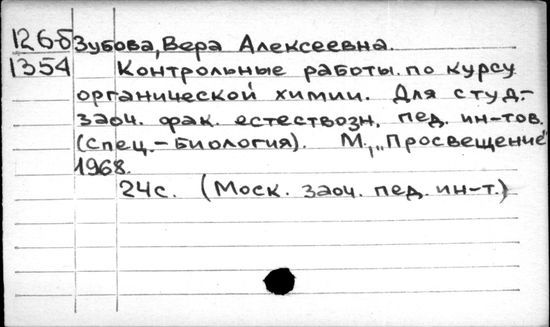 126-5 Зубова, Вера Алексеевна.
1354 Контрольные работы по курсу
органической химии. Для студ.-
заоч. фак. естествозн. пед. ин-тов.
(Спец.-Биология). М., „Просвещение"
1968.
24с. (Моск. заоч. пед. ин-т.)